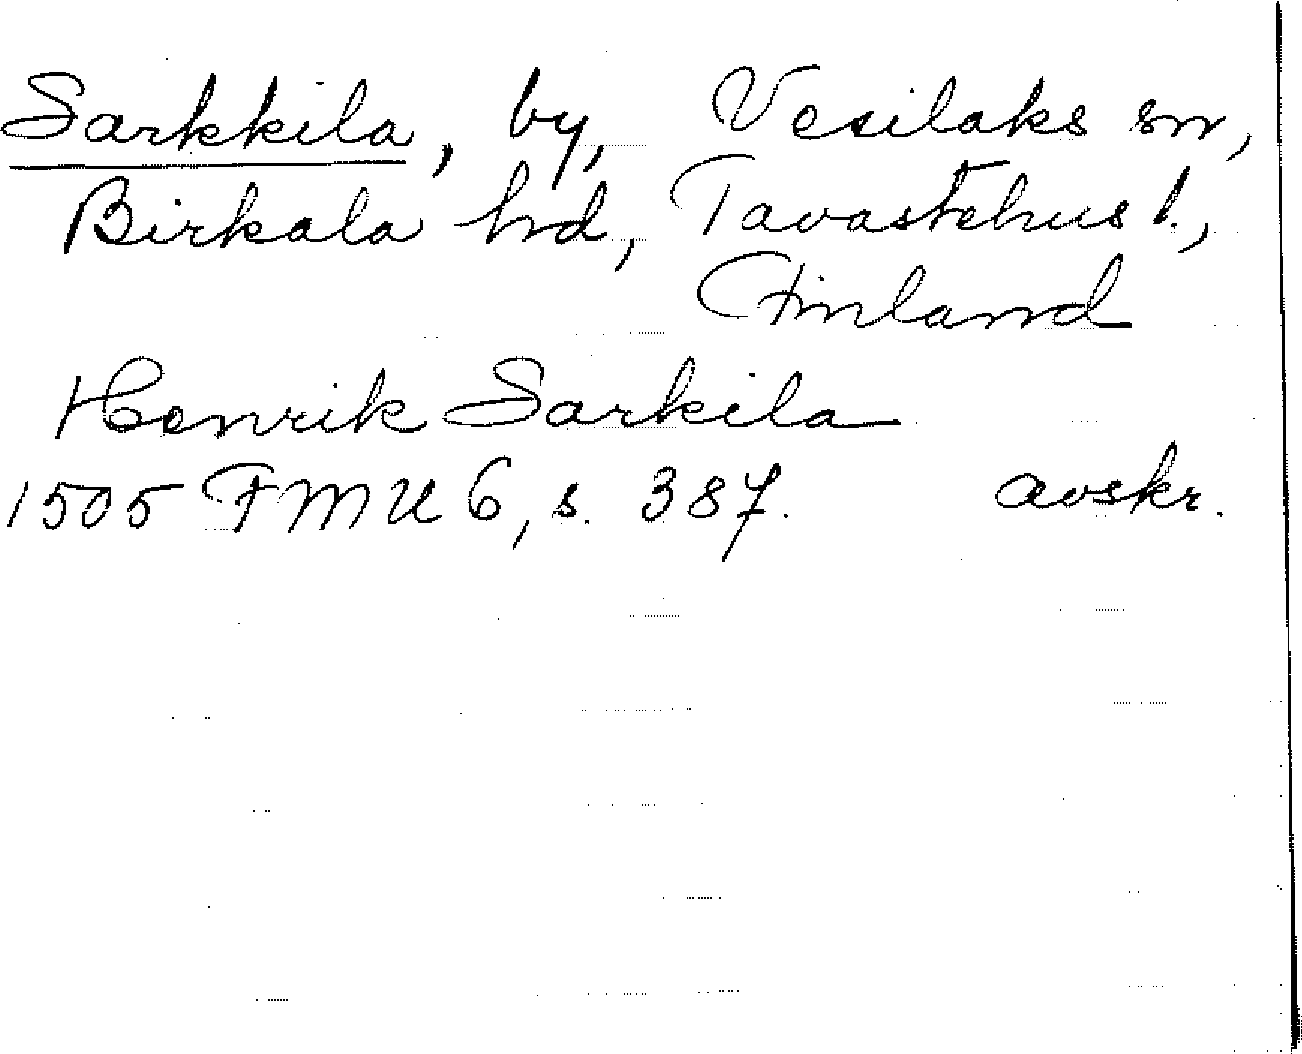 Sarkkila, by, Vesilaks sn,
Birkala hd, Tavastehus l.,
Finland
Henrik Sarkila
1505 FMU 6, s. 387. avskr.